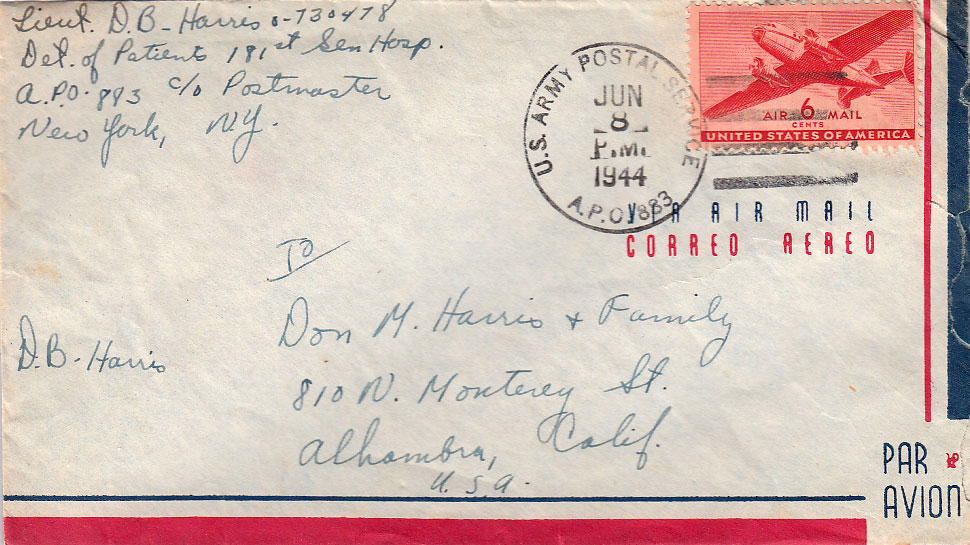 Lieut. D.B. Harris O-730478
Det. of Patients 181st Gen Hosp.
A.P.O. 883 c/o Postmaster
New York, N.Y.
U.S. ARMY POSTAL SERVICE
JUN
8
P.M.
1944
A.P.O. 883
AIR 6 MAIL
CENTS
UNITED STATES OF AMERICA
VIA AIR MAIL
CORREO AEREO
To
Don M. Harris & Family
810 N. Monterey St.
Alhambra, Calif.
U.S.A.
D.B. Harris
PAR
AVION